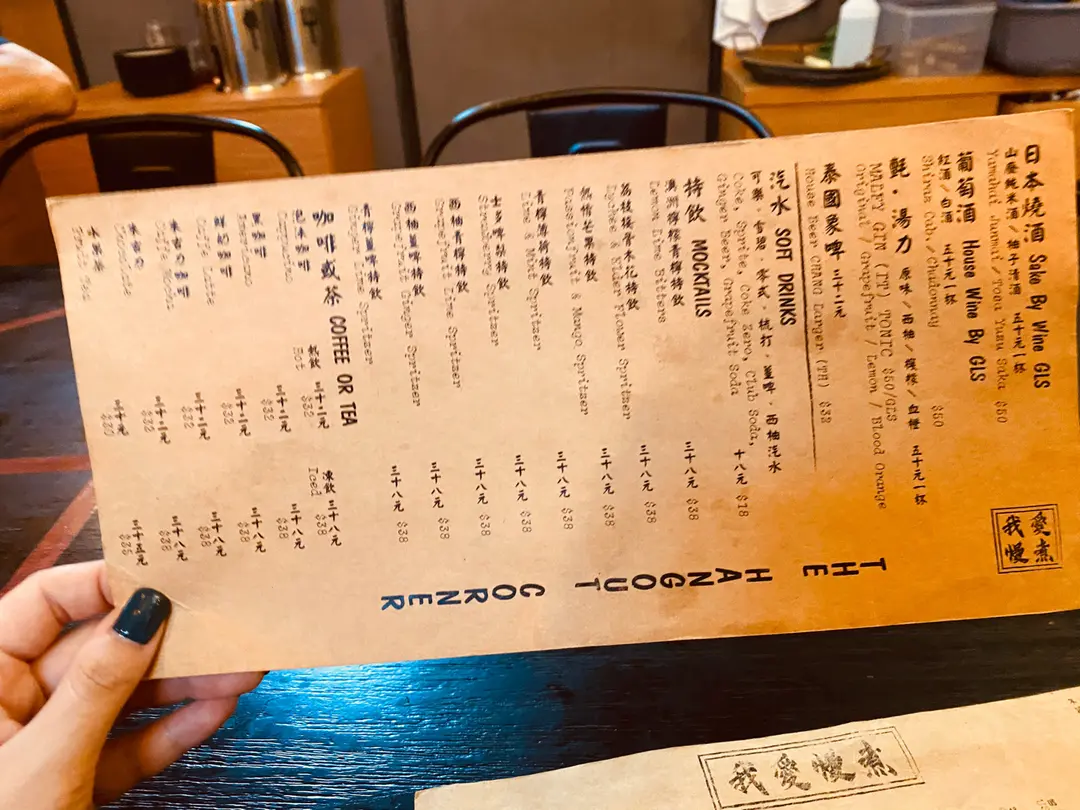 日本燒酒 Sake By Wine GLS
山廢純米酒/柚子清酒 五十元一杯
Yamahai Junmai / Tosa Yuzu Saka $50
葡萄酒 House Wine By GLS
紅酒/白酒 五十元一杯
Shiraz Cab./Chadonnay $50
氈·湯力 原味/西柚/檸檬/血橙 五十元一杯
MALFY GIN (IT) TONIC $50/GLS
Original / Grapefruit / Lemon / Blood Orange
泰國象啤 三十二元
House Beer CHANG Larger (TH) $32
汽水 SOFT DRINKS
可樂·雪碧·零式·梳打·薑啤·西柚汽水 十八元 $18
Coke, Sprite, Coke Zero, Club Soda,
Ginger Beer, Grapefruit Soda
特飲 MOCKTAILS
澳洲檸檬青檸特飲 三十八元 $38
Lemon Lime Bitters
荔枝接骨木花特飲 三十八元 $38
Lychee & Elder Flower Spritzer
熱情芒果特飲 三十八元 $38
Passionfruit & Mango Spritzer
青檸薄荷特飲 三十八元 $38
Lime & Mint Spritzer
士多啤梨特飲 三十八元 $38
Strawberry Spritzer
西柚青檸特飲 三十八元 $38
Grapefruit Lime Spritzer
西柚薑啤特飲 三十八元 $38
Grapefruit Ginger Spritzer
青檸薑啤特飲 三十八元 $38
Ginger Lime Spritzer
咖啡或茶 COFFEE OR TEA
熱飲 凍飲
Hot Iced
泡沫咖啡 三十二元 三十八元
Cappuccino $32 $38
黑咖啡 三十二元 三十八元
Americano $32 $38
鮮奶咖啡 三十二元 三十八元
Cafe Latte $32 $38
朱古力咖啡 三十二元 三十八元
Caffe Mocha $32 $38
朱古力 三十二元 三十八元
Chocolate $32 $38
水果茶 三十元 三十五元
Fruit Tea $35
THE HANGOUT CORNER
我愛
慢煮
我愛慢煮